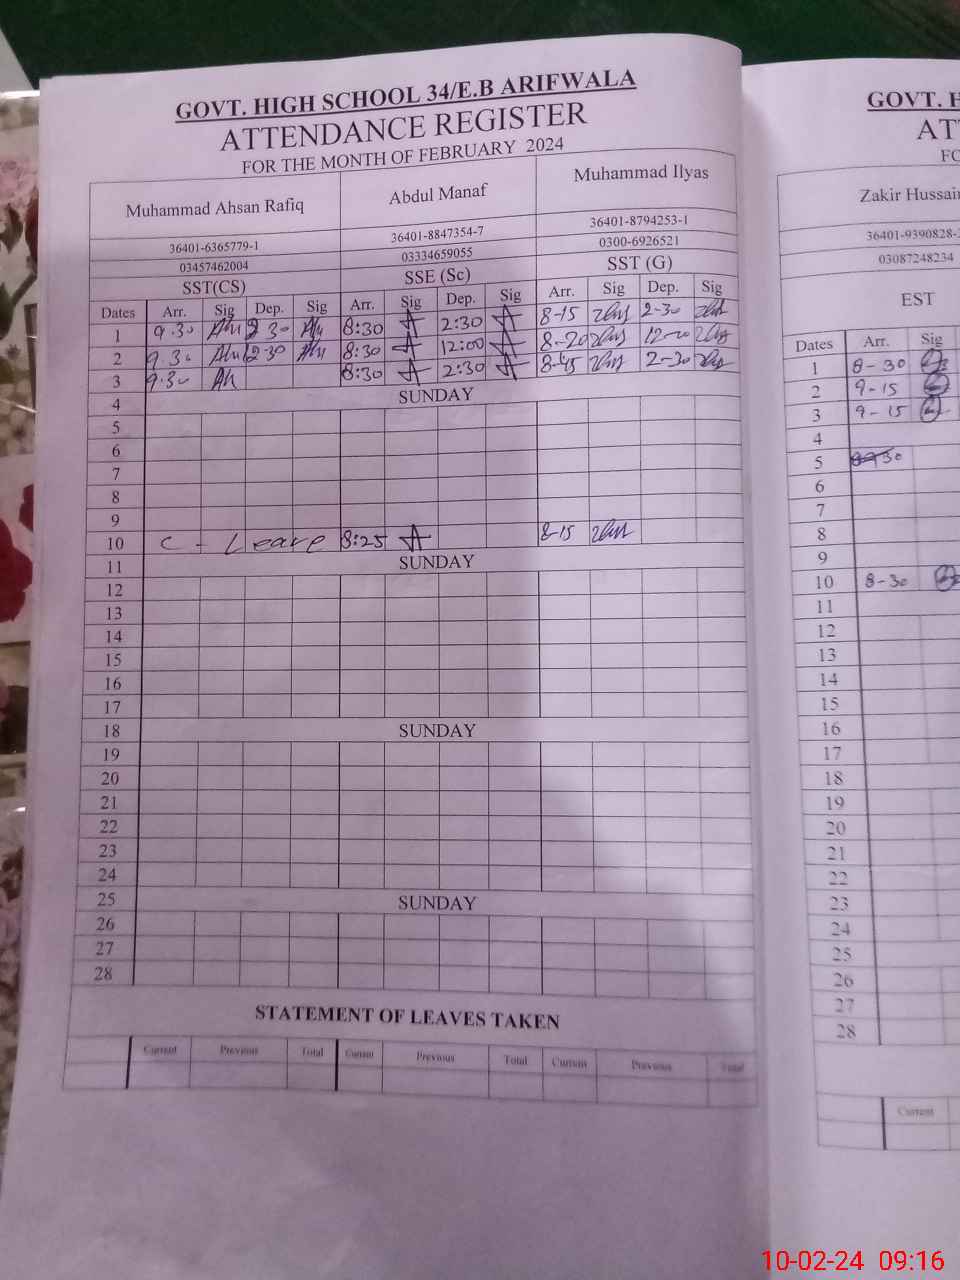 GOVT. HIGH SCHOOL 34/E.B ARIFWALA
ATTENDANCE REGISTER
FOR THE MONTH OF FEBRUARY 2024
Muhammad Ahsan Rafiq Abdul Manaf Muhammad Ilyas
36401-6365779-1 36401-8847354-7 36401-8794253-1
03457462004 03334659055 0300-6926521
SST(CS) SSE (Sc) SST (G)
Dates Arr. Sig Dep. Sig Arr. Sig Dep. Sig Arr. Sig Dep. Sig
1 9.30 2 30 8:30 2:30 8-15 2-30
2 9.30 2.30 8:30 12:00 8-20 12-20
3 9.30 8:30 2:30 8-45 2-30
4 SUNDAY
5
6
7
8
9
10 C - Leave 8:25 8-15
11 SUNDAY
12
13
14
15
16
17
18 SUNDAY
19
20
21
22
23
24
25 SUNDAY
26
27
28
STATEMENT OF LEAVES TAKEN
Current Previous Total Current Previous Total Current Previous Total
GOVT. H
AT
FO
Zakir Hussain
36401-9390828-
03087248234
EST
Dates Arr. Sig
1 8-30
2 9-15
3 9-15
4
5
6
7
8
9
10 8-30
11
12
13
14
15
16
17
18
19
20
21
22
23
24
25
26
27
28
Current
10-02-24 09:16